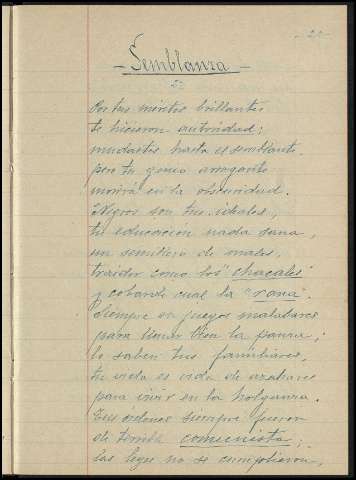 - 20 -
- Semblanza -
Por tus méritos brillantes
te hicieron autoridad;
mudastes hasta el semblante,
pero tu genio arrogante
morirá en la obscuridad.
Negros son tus ideales,
tu educación nada sana,
un semillero de males,
traidor como los "chacales"
y cobarde cual la "rana".
Siempre en juegos malabares
para llenar bien la panza;
lo saben tus familiares,
tu vida es vida de azahares
para vivir en la holganza.
Tus órdenes siempre fueron
de terrible comunista;
las leyes no se cumplieron,